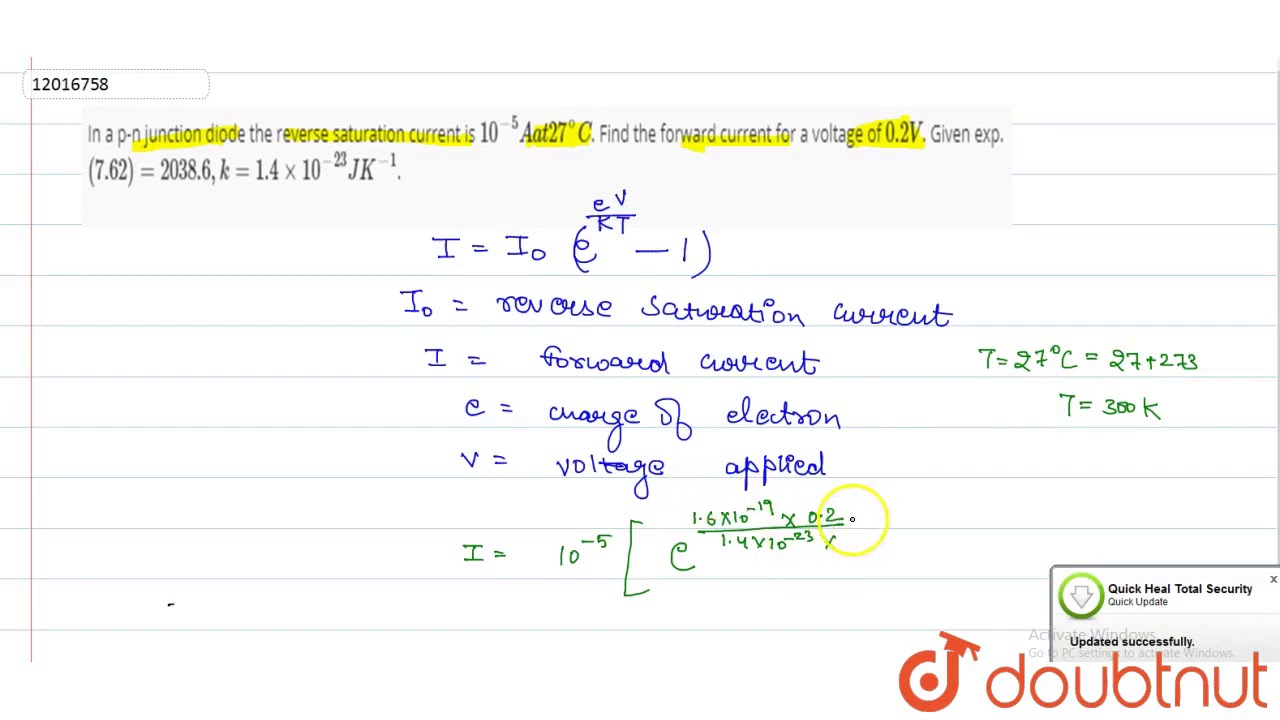 12016758
In a p-n junction diode the reverse saturation current is 10⁻⁵ Aat27°C. Find the forward current for a voltage of 0.2V. Given exp.
(7.62) = 2038.6, k = 1.4 × 10⁻²³ JK⁻¹.
I = I₀ (e^(eV/KT) — 1)
I₀ = reverse saturation current
I = forward current
T = 27°C = 27+273
T = 300 K
e = charge of electron
V = voltage applied
I = 10⁻⁵ [ e^(1.6×10⁻¹⁹ × 0.2 / 1.4×10⁻²³ ×
Quick Heal Total Security
Quick Update
Updated successfully.
x
Activate Windows
Go to PC settings to activate Windows.
doubtnut